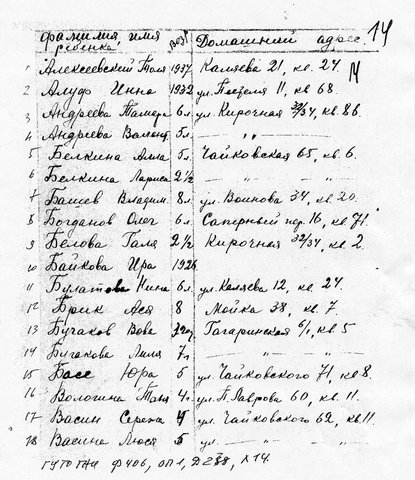 Фамилия, имя ребенка | Возр. | Домашний адрес. 14
1 Алексеевский Толя 1937 Каляева 21, кв. 27
2 Алуф Инна 1932 ул. 11, кв 68.
3 Андреева Тамара 6 л. ул. Кирочная 32/34, кв. 86
4 Андреева Валент. 5 л. — " —
5 Белкина Алла 5 л. Чайковская 65, кв. 6.
6 Белкина Лариса 2 1/2 — " —
7 Башев Владим. 8 л. ул. Воинова 34, кв. 20.
8 Богданов Олег 6 л. Саперный пер. 16, кв. 71.
9 Белова Галя 2 1/2 Кирочная 32/34, кв. 2.
10 Байкова Ира 1926
11 Булатова Нина 6 л. ул. Каляева 12, кв. 27.
12 Брик Ася 8 Мойка 38, кв. 7.
13 Бучаков Вова 3 год. Гагаринская 6/1, кв 5
14 Бучакова Лиля 7 л. — " —
15 Басс Юра 5 ул. Чайковского 71, кв 8.
16 Вологина Таня 4 л. ул. П. Лаврова 60, кв. 11.
17 Васин Сережа 4 ул. Чайковского 62, кв. 11.
18 Васина Люся 5 ул. — " —
Ф 406, оп 1, Д 278, л 14.